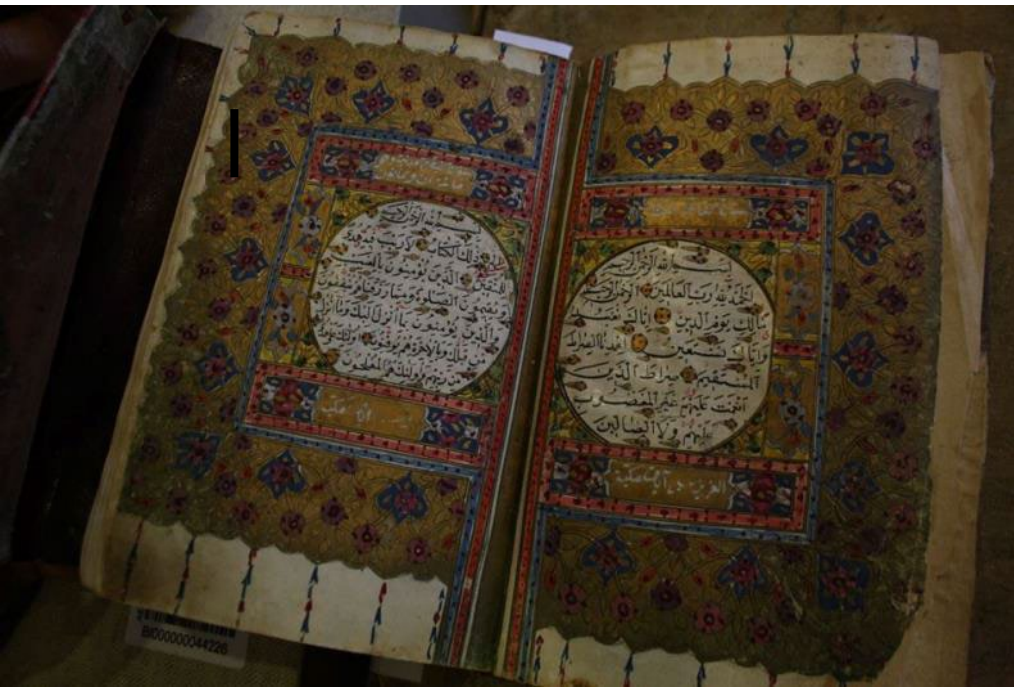 بسم الله الرحمن الرحيم
الحمد لله رب العالمين الرحمن الرحيم
مالك يوم الدين اياك نعبد
واياك نستعين اهدنا الصراط
المستقيم صراط الذين
انعمت عليهم غير المغضوب
عليهم ولا الضالين
بسم الله الرحمن الرحيم
الم ذلك الكتاب لا ريب فيه هدى
للمتقين الذين يؤمنون بالغيب
ويقيمون الصلوة ومما رزقناهم ينفقون
والذين يؤمنون بما انزل اليك وما انزل
من قبلك وبالاخرة هم يوقنون اولئك على هدى
من ربهم واولئك هم المفلحون
BI000000044226